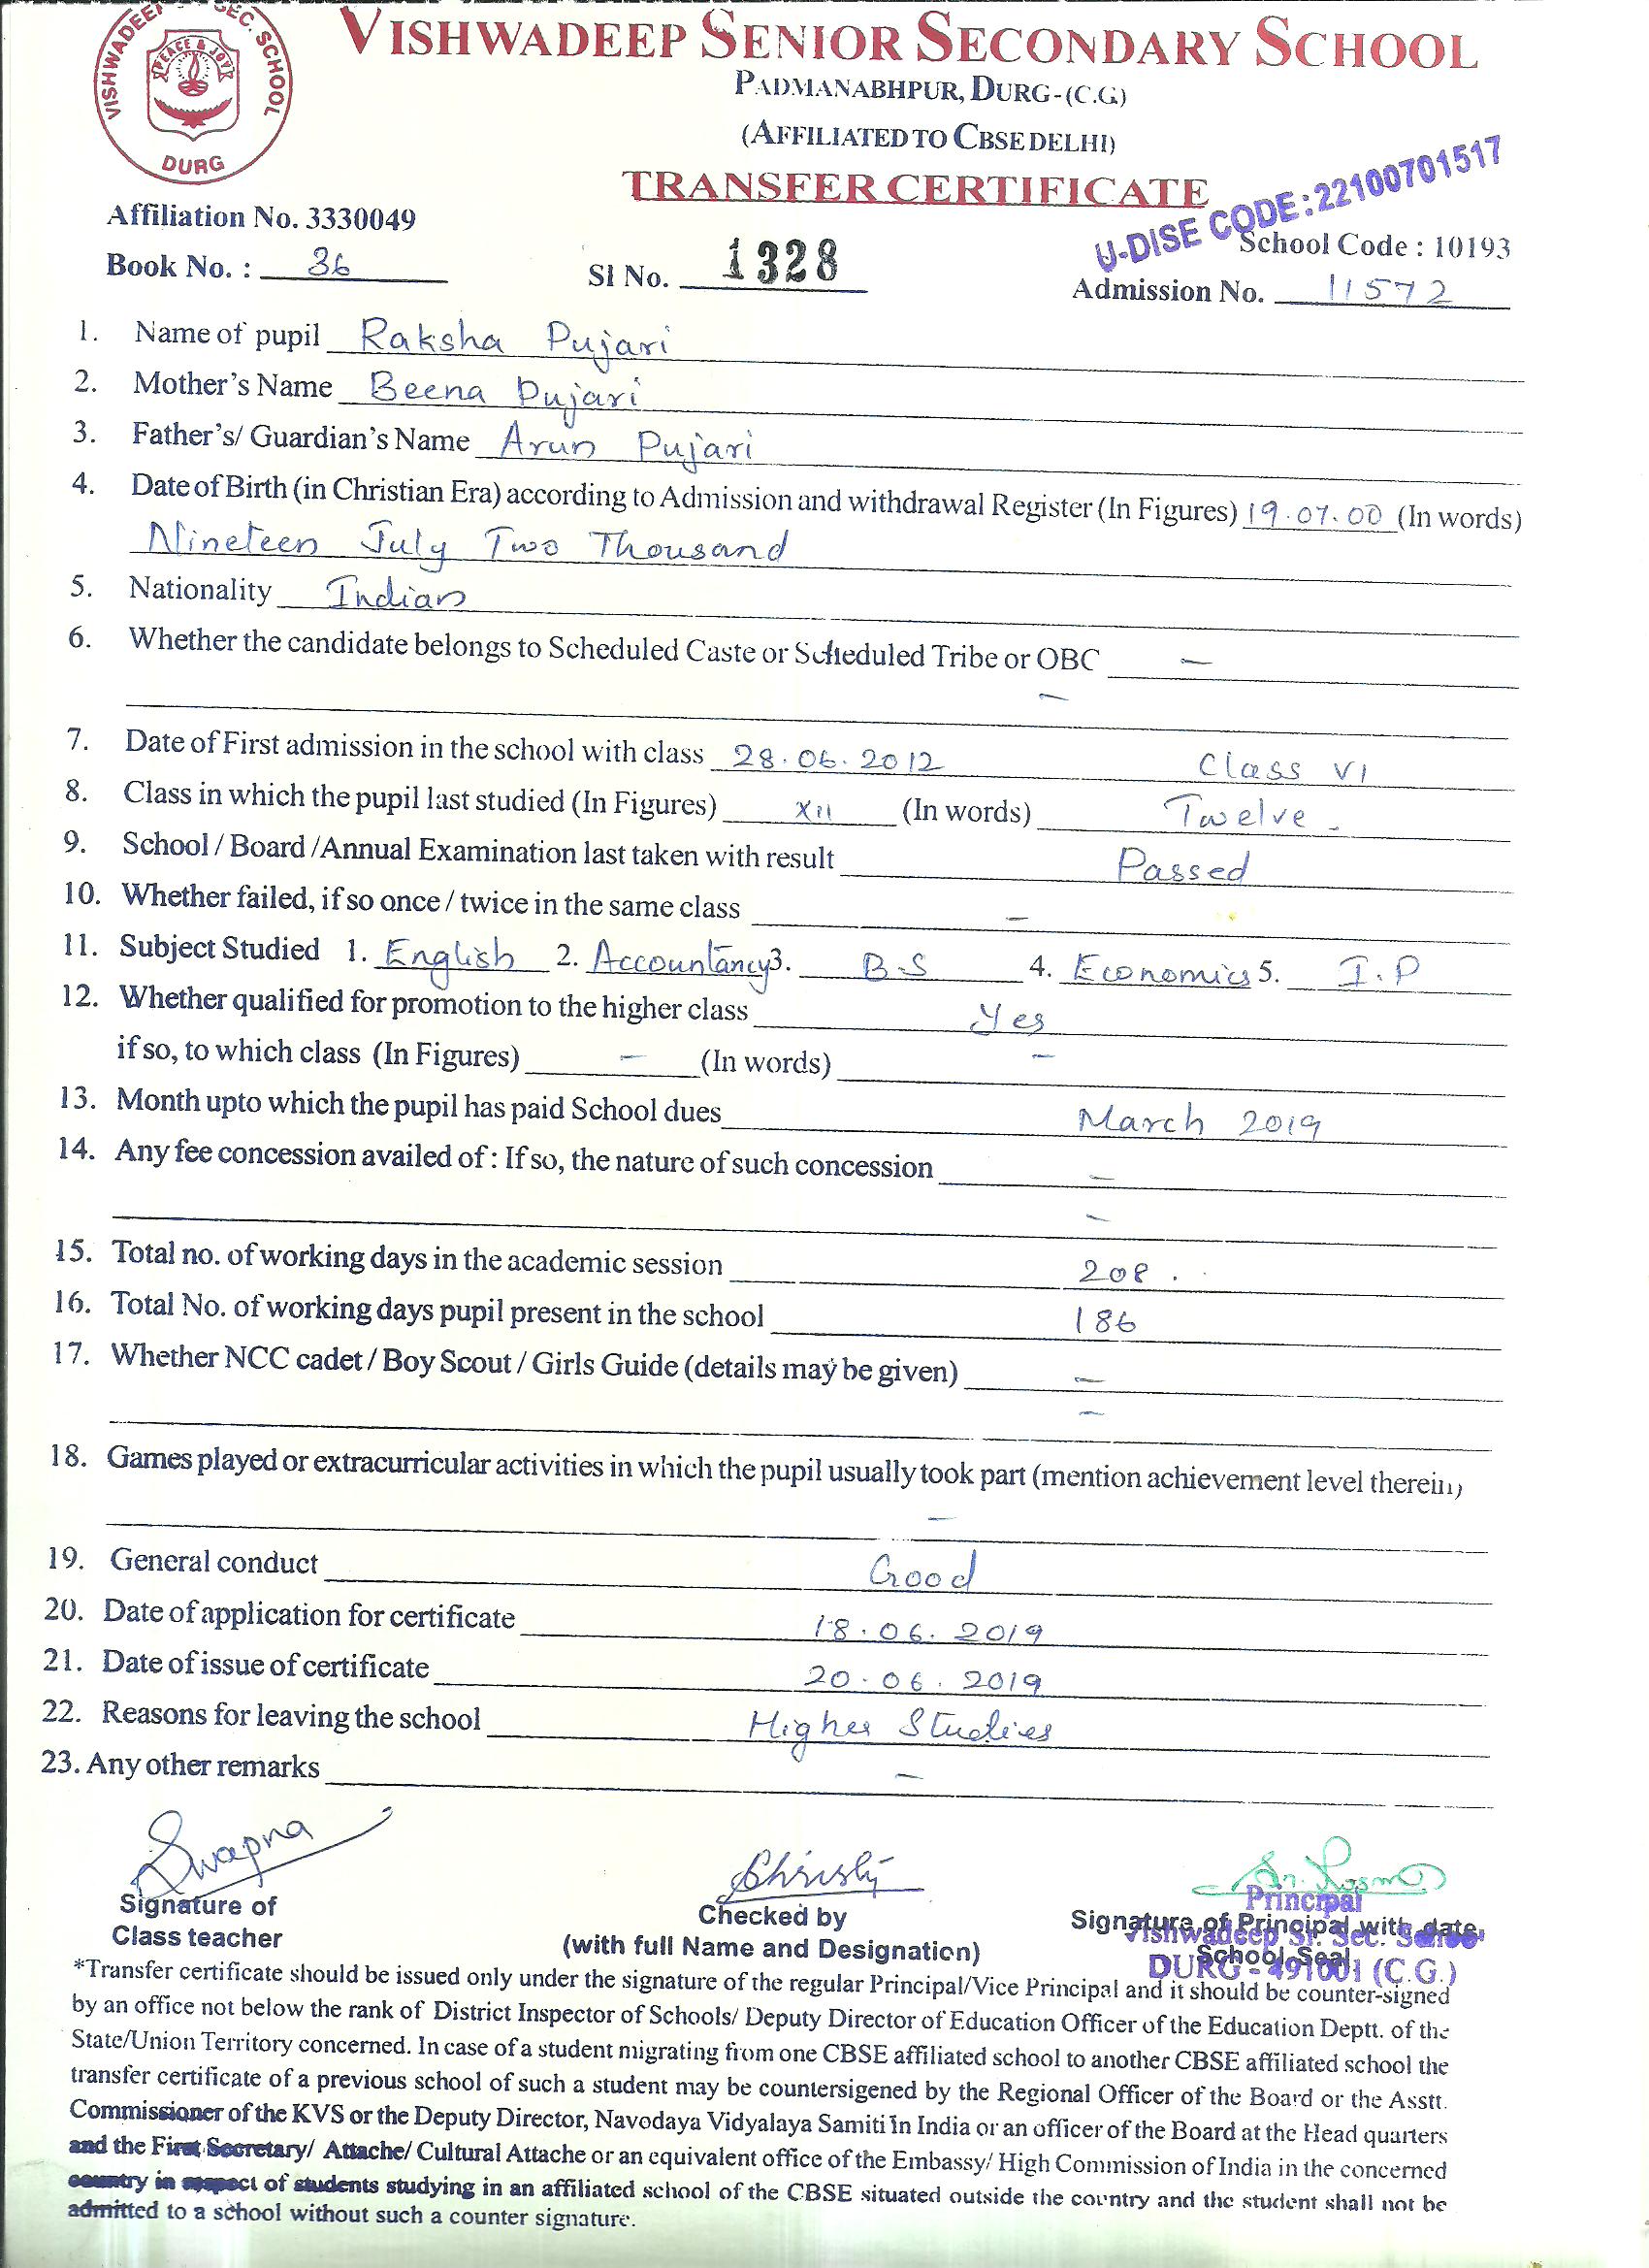 VISHWADEEP SEC. SCHOOL
PEACE & JOY
DURG
VISHWADEEP SENIOR SECONDARY SCHOOL
PADMANABHPUR, DURG-(C.G.)
(AFFILIATED TO CBSE DELHI)
TRANSFER CERTIFICATE
U-DISE CODE:22100701517
Affiliation No. 3330049
School Code : 10193
Book No. : 36 Sl No. 1328 Admission No. 11572
1. Name of pupil Raksha Pujari
2. Mother's Name Beena Pujari
3. Father's/ Guardian's Name Arun Pujari
4. Date of Birth (in Christian Era) according to Admission and withdrawal Register (In Figures) 19.07.00 (In words)
Nineteen July Two Thousand
5. Nationality Indian
6. Whether the candidate belongs to Scheduled Caste or Scheduled Tribe or OBC –
–
7. Date of First admission in the school with class 28.06.2012 Class VI
8. Class in which the pupil last studied (In Figures) XII (In words) Twelve.
9. School / Board /Annual Examination last taken with result Passed
10. Whether failed, if so once / twice in the same class –
11. Subject Studied 1. English 2. Accountancy 3. B.S 4. Economics 5. I.P
12. Whether qualified for promotion to the higher class Yes
if so, to which class (In Figures) – (In words) –
13. Month upto which the pupil has paid School dues March 2019
14. Any fee concession availed of : If so, the nature of such concession –
–
15. Total no. of working days in the academic session 208.
16. Total No. of working days pupil present in the school 186
17. Whether NCC cadet / Boy Scout / Girls Guide (details may be given) –
–
18. Games played or extracurricular activities in which the pupil usually took part (mention achievement level therein)
–
19. General conduct Good
20. Date of application for certificate 18.06.2019
21. Date of issue of certificate 20.06.2019
22. Reasons for leaving the school Higher Studies
23. Any other remarks –
Swapna Christy
Signature of
Class teacher
Checked by
(with full Name and Designation)
Principal
Signature of Principal with date
Vishwadeep Sr. Sec. School
School Seal.
DURG - 491001 (C.G.)
*Transfer certificate should be issued only under the signature of the regular Principal/Vice Principal and it should be counter-signed
by an office not below the rank of District Inspector of Schools/ Deputy Director of Education Officer of the Education Deptt. of the
State/Union Territory concerned. In case of a student migrating from one CBSE affiliated school to another CBSE affiliated school the
transfer certificate of a previous school of such a student may be countersigened by the Regional Officer of the Board or the Asstt.
Commissioner of the KVS or the Deputy Director, Navodaya Vidyalaya Samiti in India or an officer of the Board at the Head quarters
and the First Secretary/ Attache/ Cultural Attache or an equivalent office of the Embassy/ High Commission of India in the concerned
country in respect of students studying in an affiliated school of the CBSE situated outside the country and the student shall not be
admitted to a school without such a counter signature.